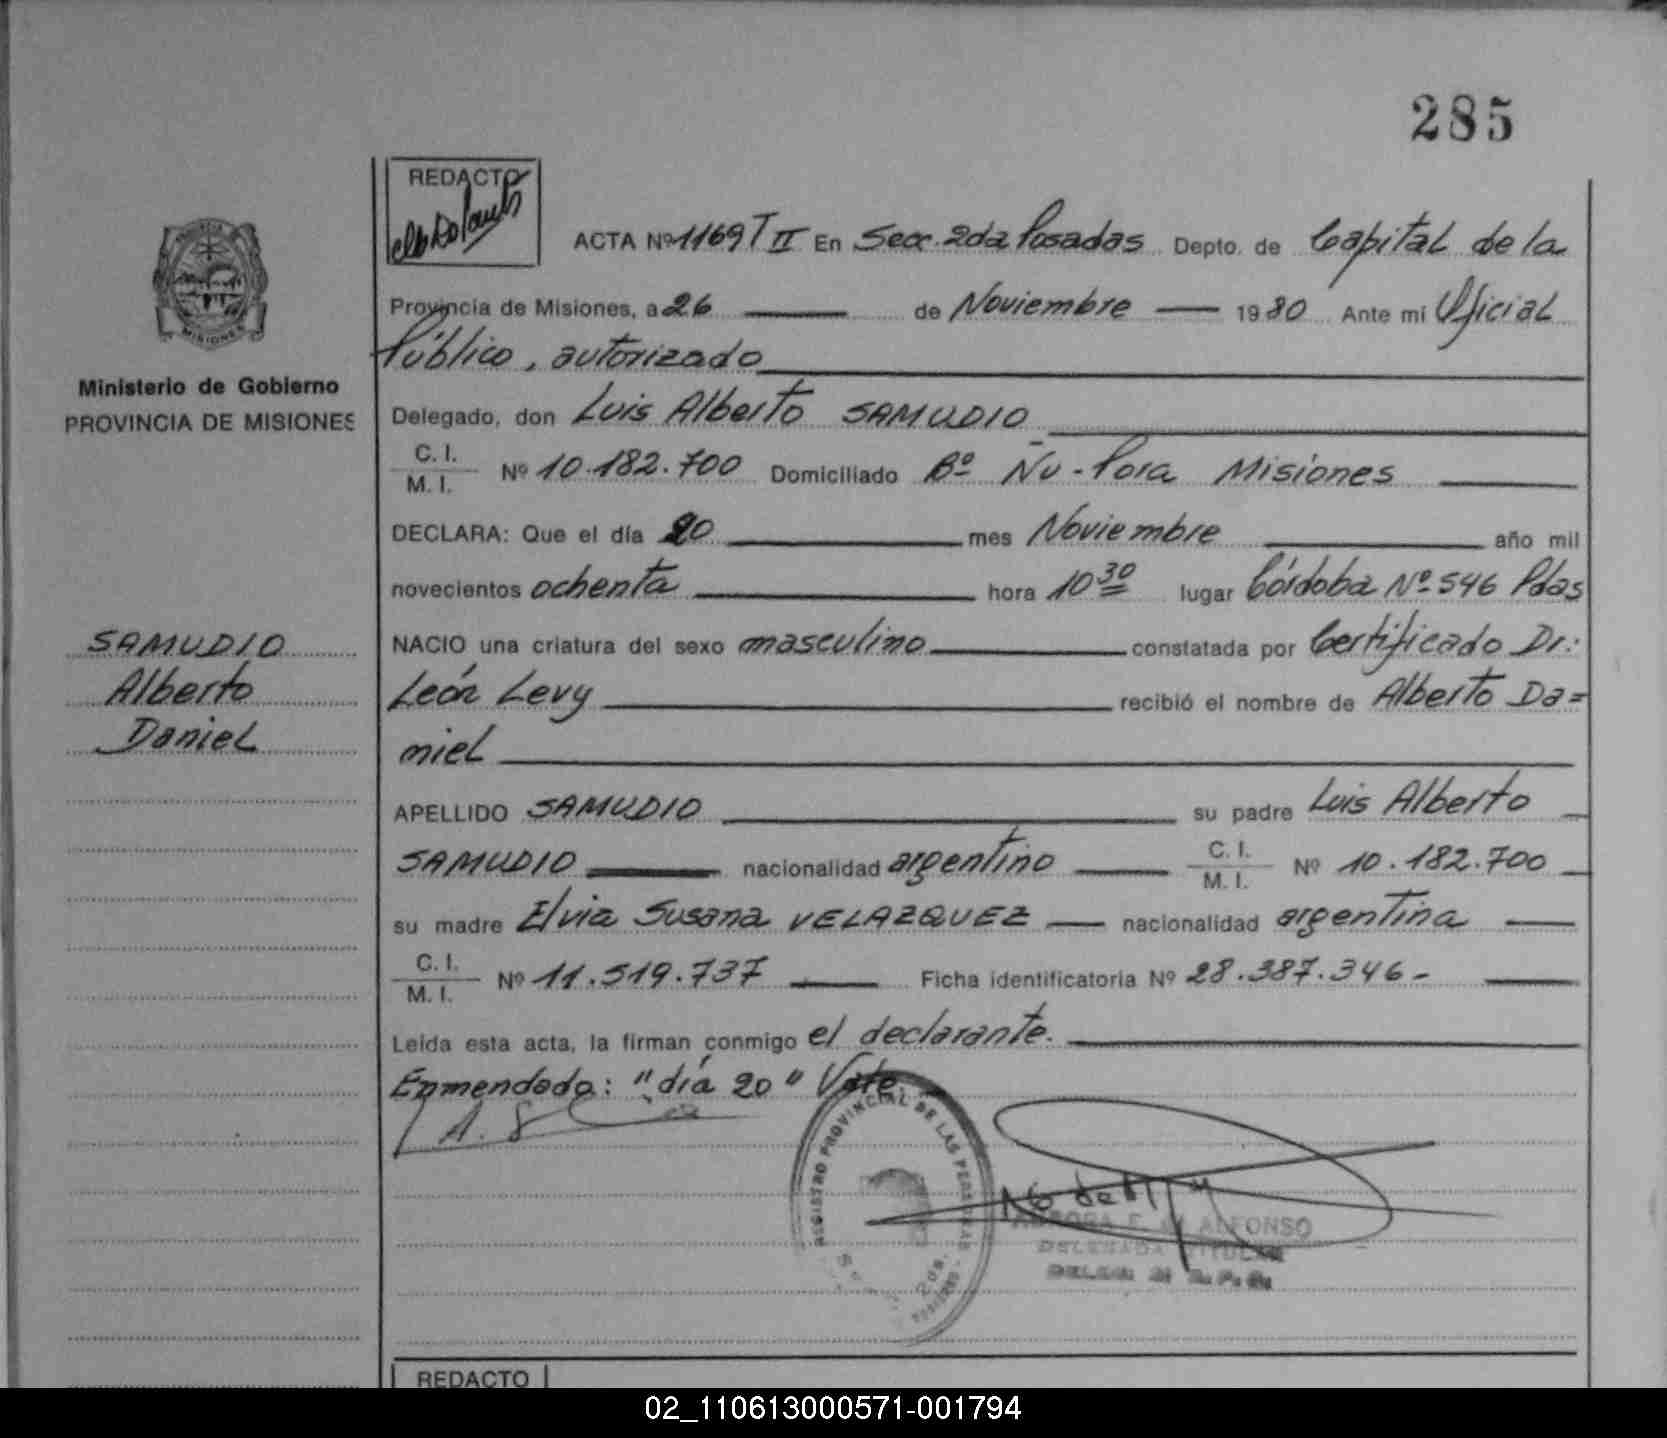 285
REDACTO
ACTA Nº 1169 T II En Secc. 2da Posadas Depto. de Capital de la
Provincia de Misiones, a 26 de Noviembre 1980 Ante mi Oficial
Público, autorizado
MISIONES
Ministerio de Gobierno
PROVINCIA DE MISIONES
Delegado, don Luis Alberto SAMUDIO
C. I.
M. I. Nº 10.182.700 Domiciliado Bº Ñu-Pora Misiones
DECLARA: Que el día 20 mes Noviembre año mil
novecientos ochenta hora 10 30 lugar Córdoba Nº 546 Pdas
SAMUDIO
Alberto
Daniel
NACIO una criatura del sexo masculino constatada por Certificado Dr:
León Levy recibió el nombre de Alberto Da=
niel
APELLIDO SAMUDIO su padre Luis Alberto
SAMUDIO nacionalidad argentino C. I.
M. I. Nº 10.182.700
su madre Elvia Susana VELAZQUEZ nacionalidad argentina
C. I.
M. I. Nº 11.519.737 Ficha identificatoria Nº 28.387.346-
Leída esta acta, la firman conmigo el declarante.
Enmendado: "día 20" Vale.
REGISTRO PROVINCIAL DE LAS PERSONAS
2da.
ALFONSO
DELEGADA TITULAR
REDACTO
02_110613000571-001794